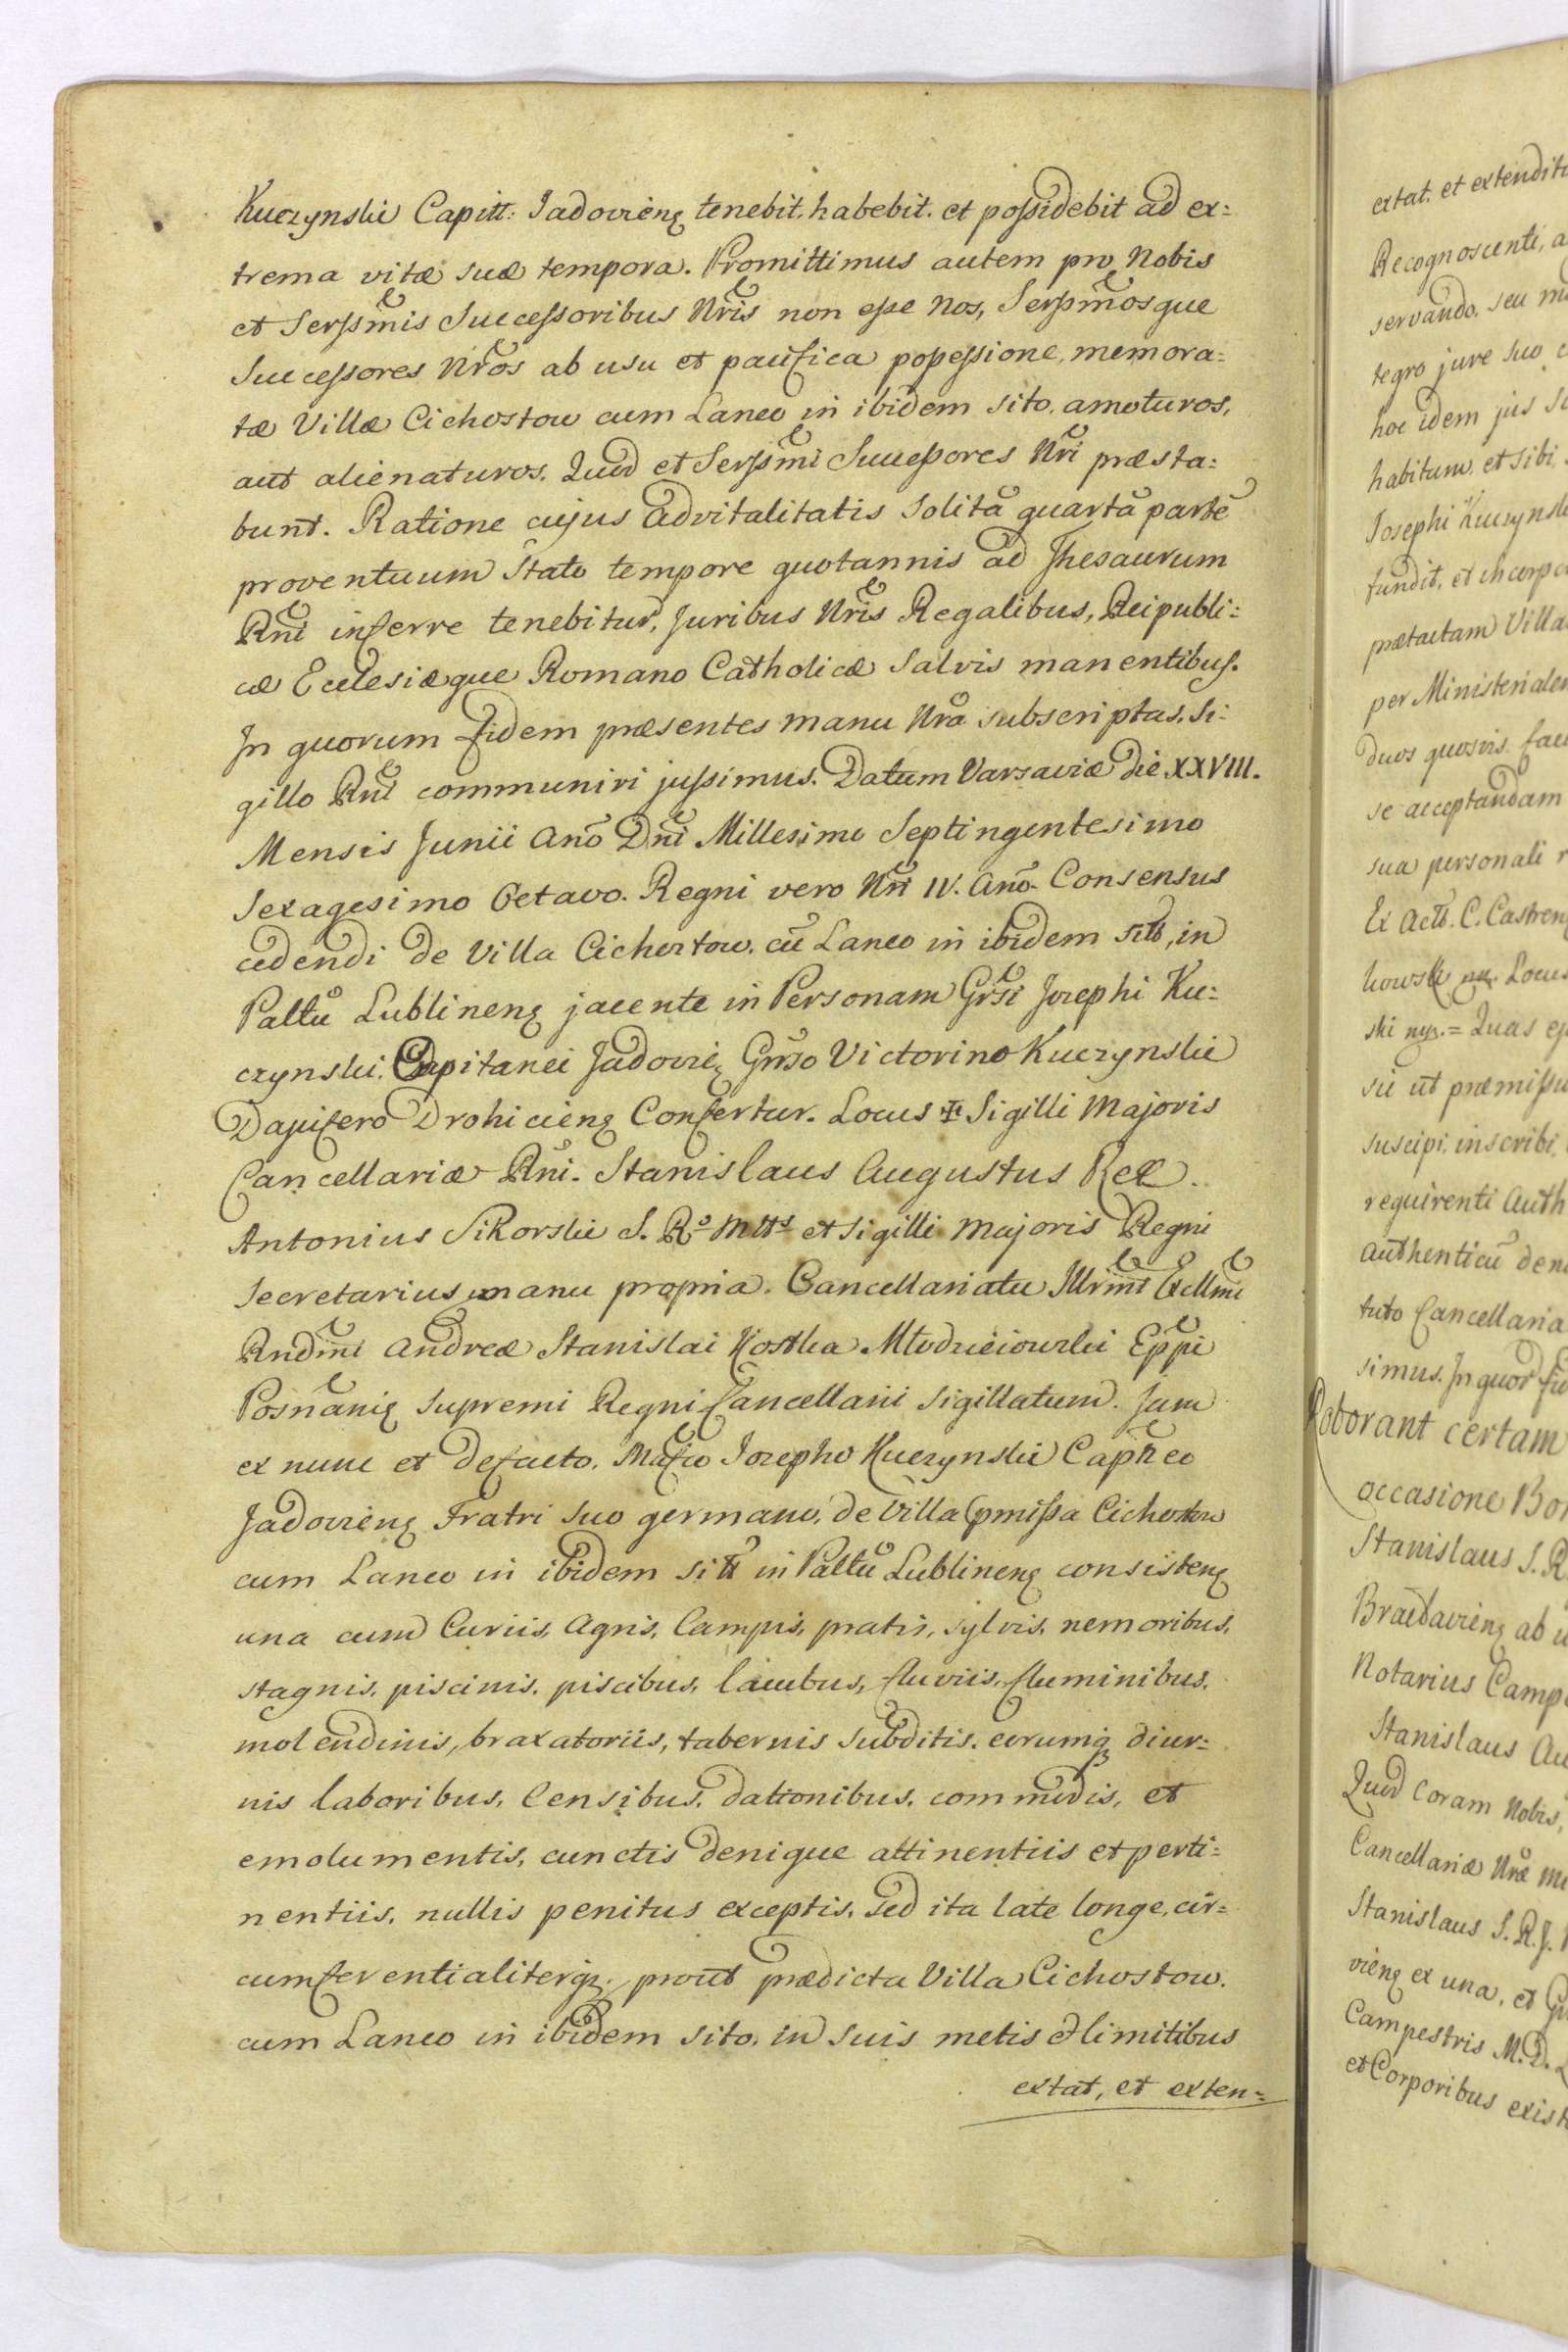 Kuczynski Capitt: Jadovieñ tenebit. habebit. et possidebit ad ex=
trema vitæ suæ tempora. Promittimus autem pro Nobis
et Serssm̃is Successoribus Nr̃is non esse Nos, Serssm̃osque
Successores Nr̃os ab usu et paucifica possessione, memora=
tæ Villæ Cichostow cum Laneo in ibidem sito. amoturos,
aut alienaturos. Quod et Serssm̃i Successores Nr̃i præsta=
bunt. Ratione cujus advitalitatis solitã quartã partẽ
proventuum stato tempore quotannis ad Thesaurum
Rñi inferre tenebitur, Juribus Nr̃is Regalibus, Reipubli=
cæ Ecclesiæque Romano Catholicæ salvis manentibus.
In quorum fidem præsentes manu Nr̃a subscriptas. Si=
gillo Rñi communiri jussimus. Datum Varsaviæ die XXVIII.
Mensis Junii Anõ Dñi Millesimo Septingentesimo
Sexagesimo Octavo. Regni vero Nr̃i IV. Anõ. Consensus
cedendi de Villa Cichostow. cũ Laneo in ibidem sito, in
Palttũ Lublineñ jacente in Personam Gr̃si Josephi Ku=
czynski. Capitanei Jadovieñ Gñso Victorino Kuczynski
Dapifero Drohicieñ Confertur. Locus ✠ Sigilli Majoris
Cancellariæ Rñi. Stanislaus Augustus Rex.
Antonius Sikorski S. Rᵒ Mttˢ et Sigilli Majoris Regni
Secretarius manu propria. Cancellariatu Illr̃mi Excllm̃i
Rndm̃i Andreæ Stanislai Kostka Młodzieiowski Epp̃i
Posnanieñ Supremi Regni Cancellarii sigillatum. Jam
ex nunc et defacto. Mafco Josepho Kuczynski Capñeo
Jadovieñ Fratri suo germano. de Villa p̃missa Cichostow
cum Laneo in ibidem sitto in Palttũ Lublineñ consisteñ
una cum Curiis, Agris, Campis, pratis, sylvis, nemoribus,
stagnis, piscinis. piscibus, lacubus, fluviis, fluminibus.
molendinis, braxatoriis, tabernis subditis. eorumq̃ diur=
nis laboribus, Censibus. dationibus. commodis, et
emolumentis, cunctis denique attinentiis et perti=
nentiis. nullis penitus exceptis. sed ita late longe, cir=
cumferentialiterq̃. prout prædicta Villa Cichostow.
cum Laneo in ibidem sito. in suis metis & limitibus
extat, et exten=
extat. et extendit
Recognoscenti, a
servando. seu
tegro jure suo
hoc idem jus
habitum. et sibi
Josephi Kuczynski
fundit, et incorp
prætactam Villa
per Ministerialem
duos quosvis.
se acceptandam
sua personali
Ex Act. C. Castreñ
Locus
ski mpp. = Quas
sic ut præmissu
suscipi. inscribi.
requirenti Auth
authenticũ
tuto Cancellaria
simus. In quor
Roborant certam
occasione
Stanislaus S. R.
Braclavieñ ab
Notarius Camp
Stanislaus Au
Quod Coram Nobis,
Cancellariæ Nr̃æ
Stanislaus S. R. J.
vieñ ex una, et
Campestris M. D.
et Corporibus exist